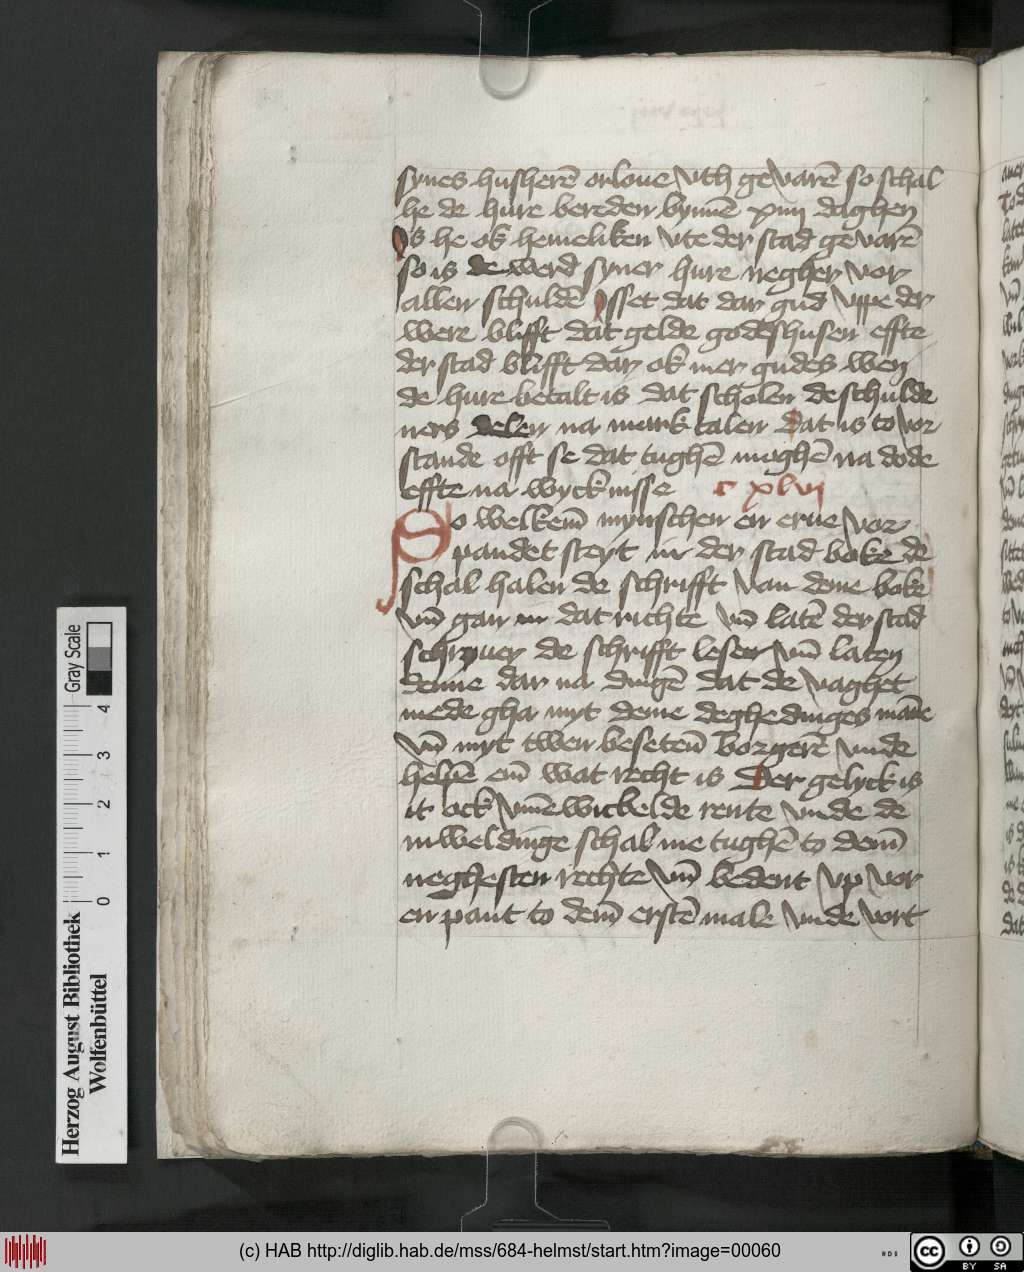 synes husherē orloue vth gevarē so schal
he de hure bereden bynnē xiiij daghen
Is he ok hemeliken vte der stad gevarē
so is de werd syner hure negher vor
allen schuldē Isset dat dar gud vppe der
were blifft dat gelde godeshusen effte
der stad blifft dar ok mer gudes wen
de hure betalt is dat scholen de schulde
ners delen na mark talen Dat is to vor
stande offt se dat tughē moghē na dode
effte na wycknisse c xlvi
So welkem̄ mynschen en erue vor
pandet steyt in der stad boke de
schal halen de schrifft van deme boke
vn̄ gan in dat richte vn̄ latē der stad
schryuer de schrifft lesen vn̄ laten
denne dar na dingē dat de vaghet
mede gha myt deme deghedinges māne
vn̄ myt twen beseten̄ borgerē vnde
helpē em̄ wat recht is Der gelyck is
it ock vmme wickelde rente vnde de
inweldinge schal me tughē to dem̄
neghesten rechte vn̄ bedent vp vor
en pant to dem̄ erstē male vnde vort
Gray Scale
0 1 2 3 4
Herzog August Bibliothek
Wolfenbüttel
(c) HAB http://diglib.hab.de/mss/684-helmst/start.htm?image=00060
cc BY SA